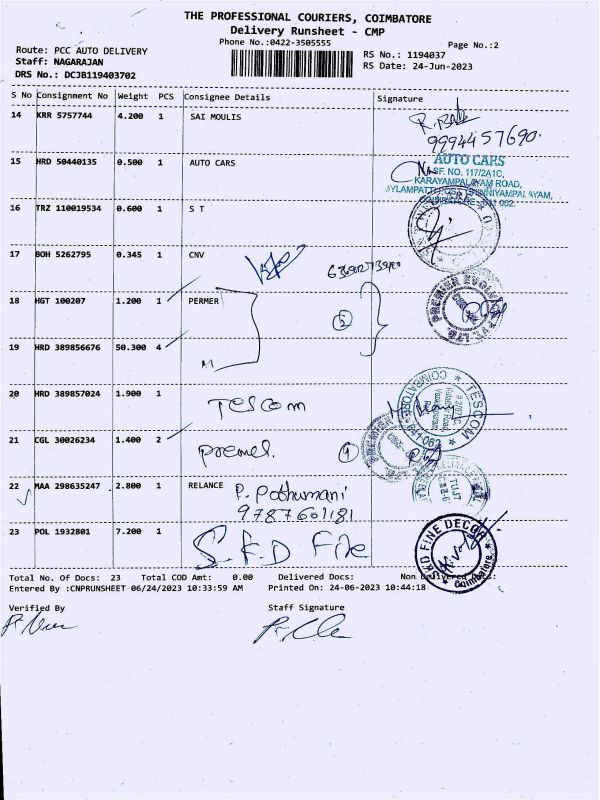 THE PROFESSIONAL COURIERS, COIMBATORE
Delivery Runsheet - CMP
Phone No.:0422-3505555
Page No.:2
Route: PCC AUTO DELIVERY
Staff: NAGARAJAN
DRS No.: DCJB119403702
RS No.: 1194037
RS Date: 24-Jun-2023
S No Consignment No Weight PCS Consignee Details Signature
14 KRR 5757744 4.200 1 SAI MOULIS
9994457690.
15 HRD 50440135 0.500 1 AUTO CARS
AUTO CARS
SF. NO. 117/2A1C,
KARAYAMPALAYAM ROAD,
16 TRZ 110019534 0.600 1 S T
17 BOH 5262795 0.345 1 CNV
18 HGT 100207 1.200 1 PERMER
2
19 HRD 389856676 50.300 4
20 HRD 389857024 1.900 1 Tescom
TESCOM
COIMBATORE
21 CGL 30026234 1.400 2 premel.
1
22 MAA 298635247 2.800 1 RELANCE P. Pothumani
9787601181
23 POL 1932801 7.200 1 S.K.D File
UKD FINE DECOR
Coimbatore
Total No. Of Docs: 23 Total COD Amt: 0.00 Delivered Docs: Non Delivered Docs:
Entered By :CNPRUNSHEET 06/24/2023 10:33:59 AM Printed On: 24-06-2023 10:44:18
Verified By Staff Signature